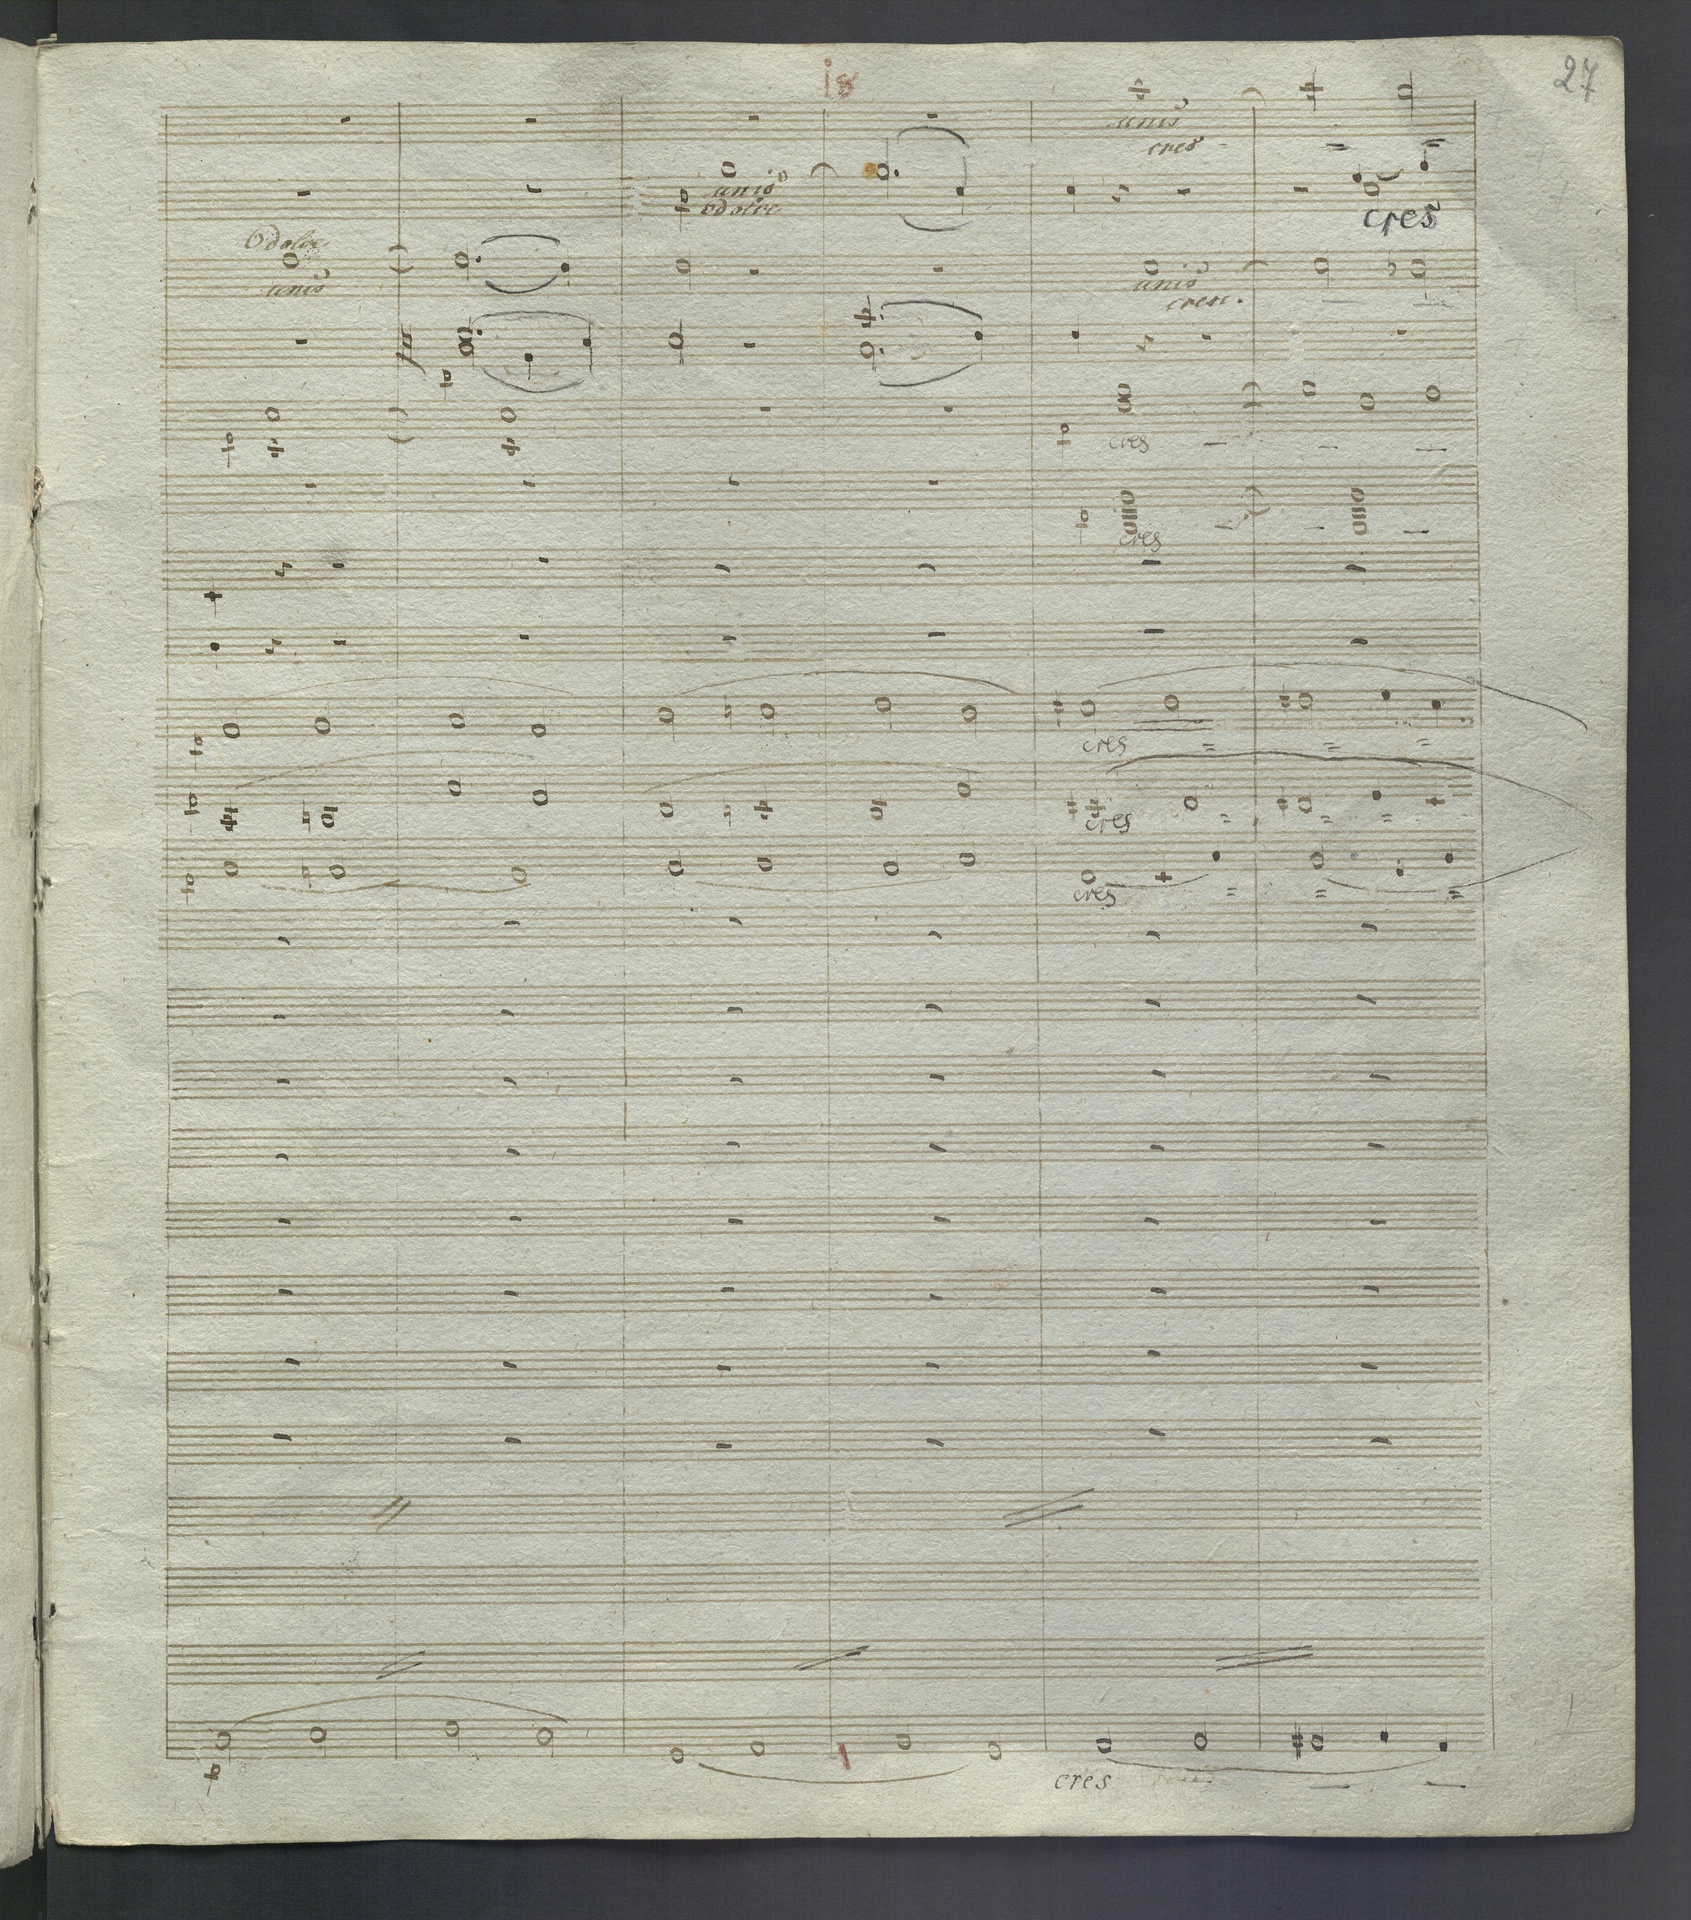 18
27
unis
cres
unis
dolce
cres
dolce
unis
unis
cresc.
cres
cres
cres
cres
cres
cres